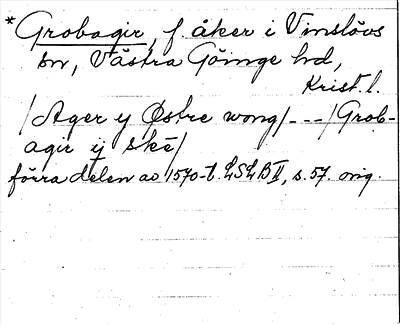 *Grobagir, f. åker i Vinslövs
sn, Västra Göinge hd,
Krist. l.
/Ager y Østre wong/---/Grob-
agir ij skē/
förra delen av 1570-t. LSLB II, s. 57. orig.